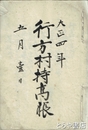 大正四年
行方村持高帳
五月壹日